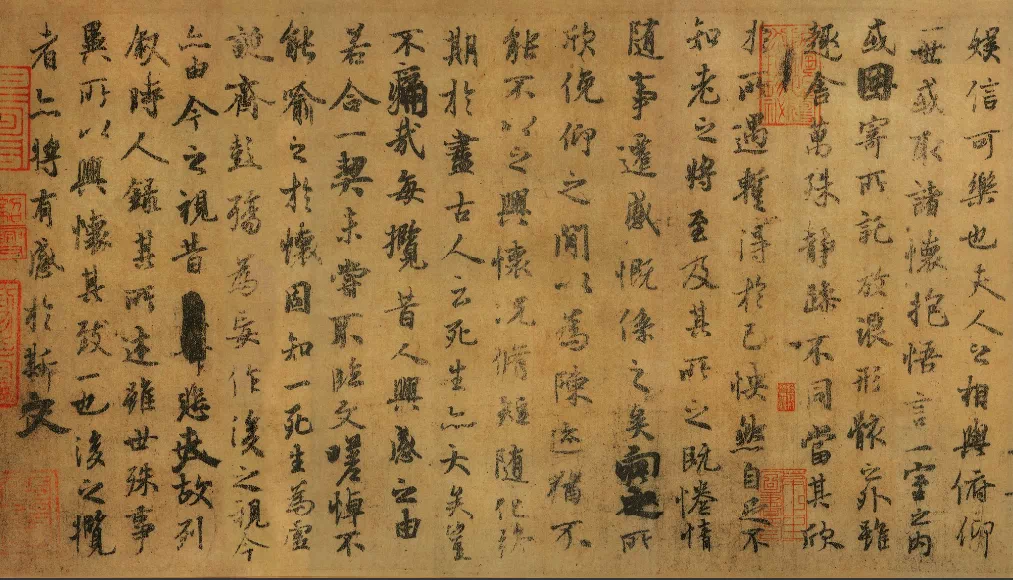 娱信可樂也夫人之相與俯仰
一世或取諸懷抱悟言一室之內
或因寄所託放浪形骸之外雖
趣舍萬殊靜躁不同當其欣
於所遇暫得於己怏然自足不
知老之將至及其所之既惓情
隨事遷感慨係之矣向之所
欣俛仰之閒以為陳迹猶不
能不以之興懷況脩短隨化終
期於盡古人云死生亦大矣豈
不痛哉每攬昔人興感之由
若合一契未嘗不臨文嗟悼不
能喻之於懷固知一死生為虛
誕齊彭殤為妄作後之視今
亦由今之視昔悲夫故列
敘時人錄其所述雖世殊事
異所以興懷其致一也後之攬
者亦將有感於斯文